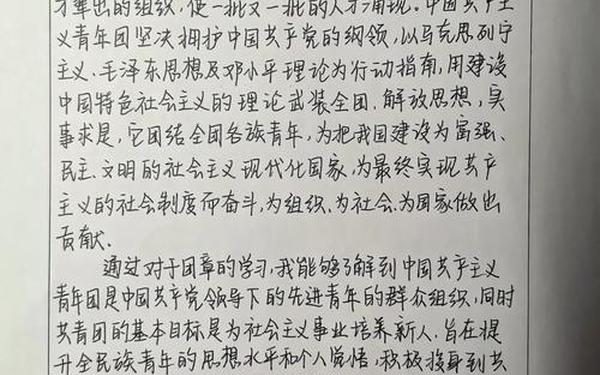 才辈出的组织,使一批又一批的人才涌现。中国共产主
义青年团坚决拥护中国共产党的纲领,以马克思列宁
主义、毛泽东思想及邓小平理论为行动指南,用建设
中国特色社会主义的理论武装全团,解放思想,实
事求是,它团结全团各族青年,为把我国建设为富强、
民主、文明的社会主义现代化国家,为最终实现共产
主义的社会制度而奋斗,为组织、为社会、为国家做出
贡献.
通过对于团章的学习,我能够了解到中国共产主义
青年团是中国共产党领导下的先进青年的群众组织,同时
共青团的基本目标是为社会主义事业培养新人.旨在提
升全民族青年的思想水平和个人觉悟,积极投身到共